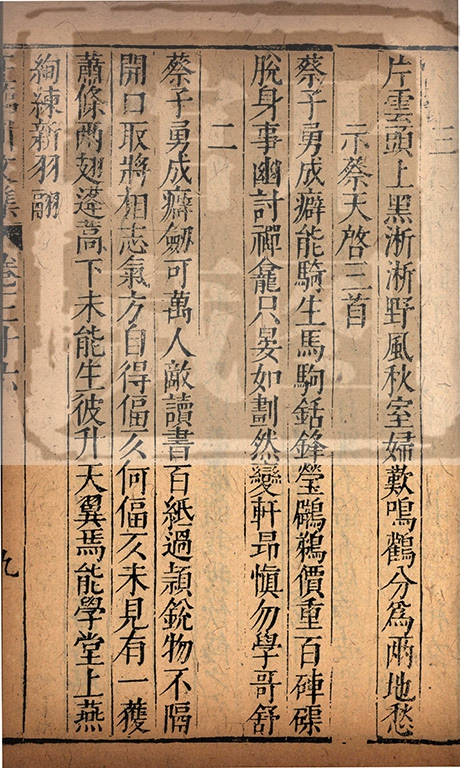 三
片雲頭上黑淅淅野風秋室婦歎鳴鸛分為兩地愁
示蔡天啓三首
蔡子勇成癖能騎生馬駒銛鋒瑩鸊鵜價重百硨磲
脫身事幽討禪龕只晏如劃然變軒昻慎勿學哥舒
二
蔡子勇成癖劒可萬人敵讀書百紙過頴銳物不隔
開口取將相志氣方自得偪仄何偪仄未見有一獲
蕭條兩翅蓬蒿下未能生彼升天翼焉能學堂上燕
絢練新羽翮
文集 卷三十六
九